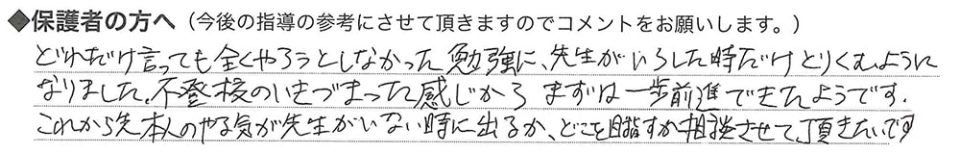 ◆保護者の方へ（今後の指導の参考にさせて頂きますのでコメントをお願いします。）
どれだけ言っても全くやろうとしなかった勉強に、先生がいらした時だけとりくむように
なりました。不登校のいきづまった感じから まずは一歩前進できたようです。
これから先本人のやる気が先生がいない時に出るか、どこを目指すか相談させて頂きたいです